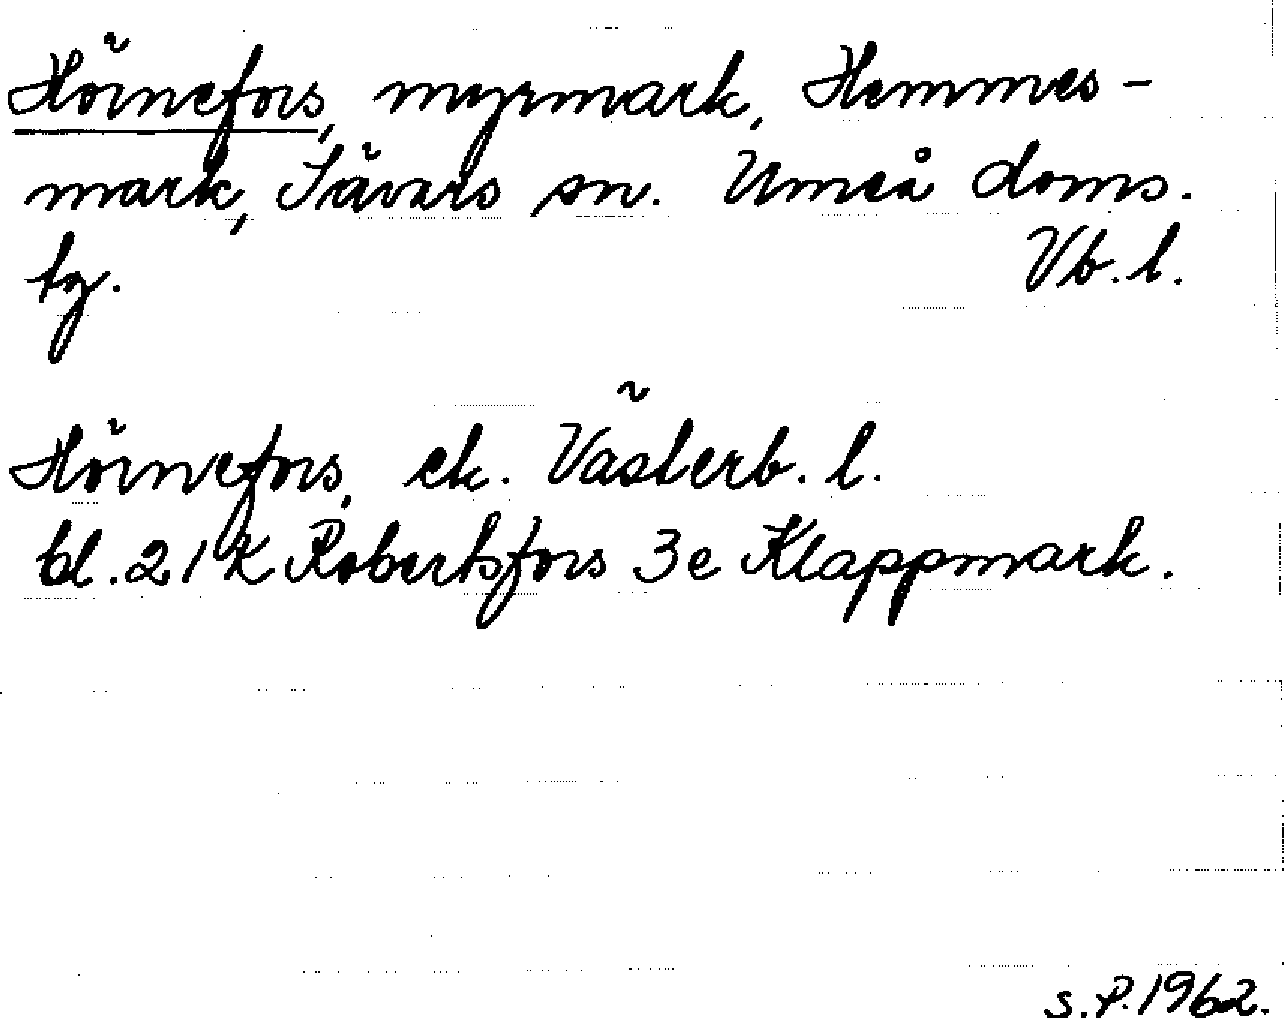 Hörnefors, myrmark, Hemmes-
mark, Sävars sn. Umeå doms.
tg. Vb. l.
Hörnefors, ek. Västerb. l.
bl. 21K Robertsfors 3e Klappmark.
S.P. 1962.